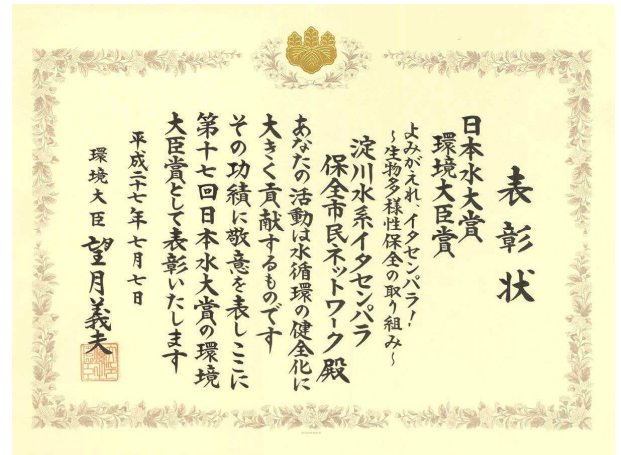 表彰状
日本水大賞
環境大臣賞
よみがえれ、イタセンパラ！
～生物多様性保全の取り組み～
淀川水系イタセンパラ
保全市民ネットワーク殿
あなたの活動は水循環の健全化に
大きく貢献するものです
その功績に敬意を表しここに
第十七回日本水大賞の環境
大臣賞として表彰いたします
平成二十七年七月七日
環境大臣 望月義夫